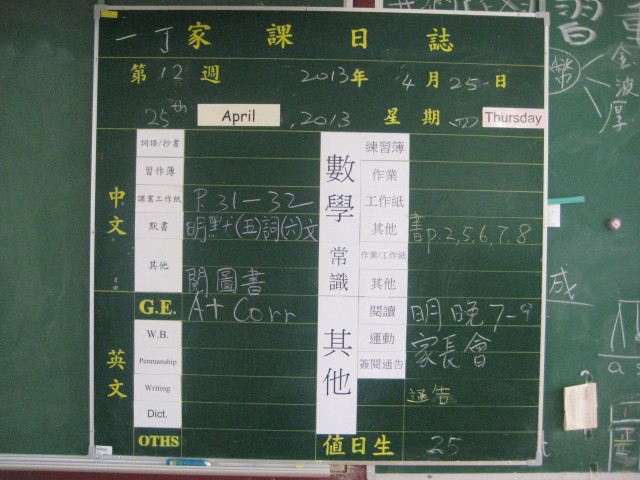 一丁家課日誌
第12週 2013年 4月25日
25th April, 2013 星期四 Thursday
中文
詞語/抄書
習作簿
課業工作紙 P.31-32
默書 明默十(五)詞(六)文
其他 閱圖書
G.E. A+ Corr
英文
W.B.
Penmanship
Writing
Dict.
OTHS
數學
練習簿
作業
工作紙
其他 書p.2,5,6,7,8
常識
作業/工作紙
其他
其他
閱讀 明晚7-9
運動 家長會
簽閱通告
通告
值日生 25
習
金
波
厚
成